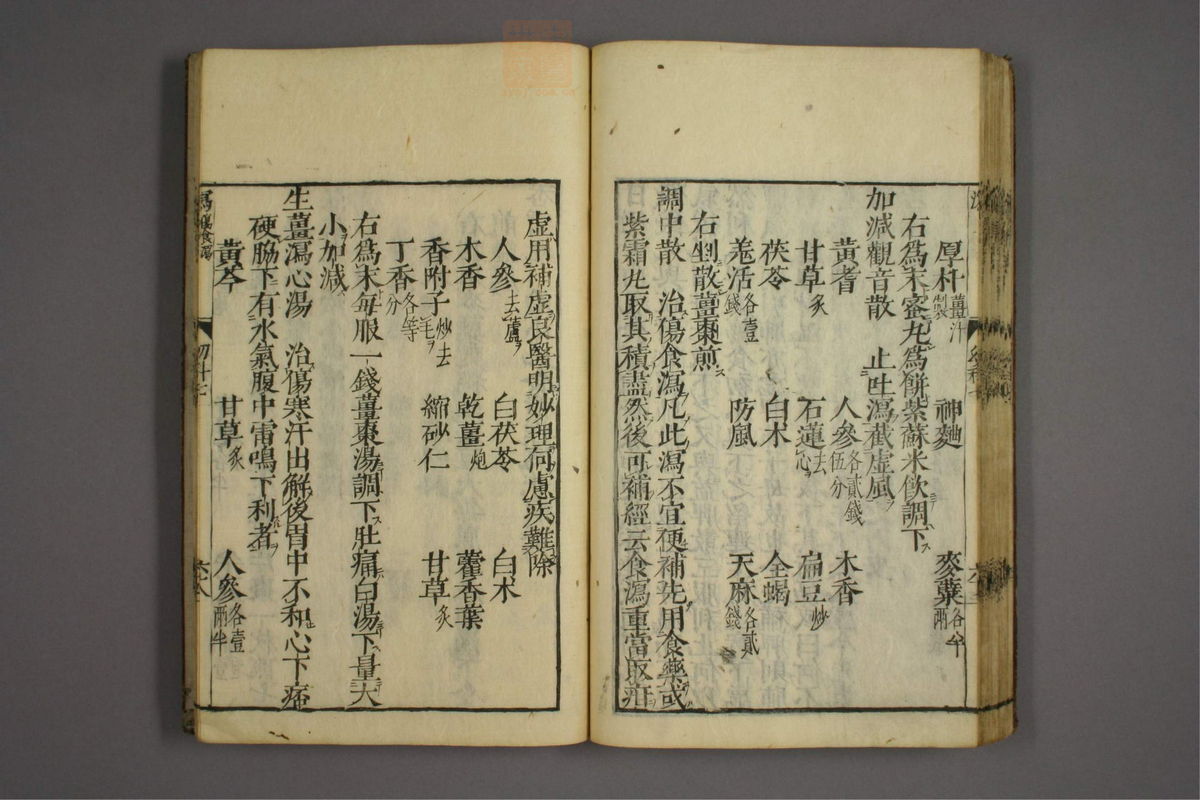 厚朴薑汁製　神麯　麥蘖各半兩
右爲末蜜丸爲餅紫蘇米飲調下
加減觀音散　止吐瀉截虛風
黃耆　人參各貳錢伍分　木香
甘草炙　石蓮去心　扁豆炒
茯苓　白朮　全蝎
羗活各壹錢　防風　天麻各貳錢
右剉散薑棗煎
調中散　治傷食瀉凡此瀉不宜便補先用食藥或
紫霜丸取其積盡然後可補經云食瀉重當取疰
虛用補虛良醫明妙理何慮疾難除
人參去蘆　白茯苓　白朮
木香　乾薑炮　藿香葉
香附子炒去毛　縮砂仁　甘草炙
丁香各等分
右爲末每服一錢薑棗湯調下肚痛白湯下量大
小加減
生薑瀉心湯　治傷寒汗出解後胃中不和心下痞
硬脇下有水氣腹中雷鳴下利者
黃芩　甘草炙　人參各壹兩半